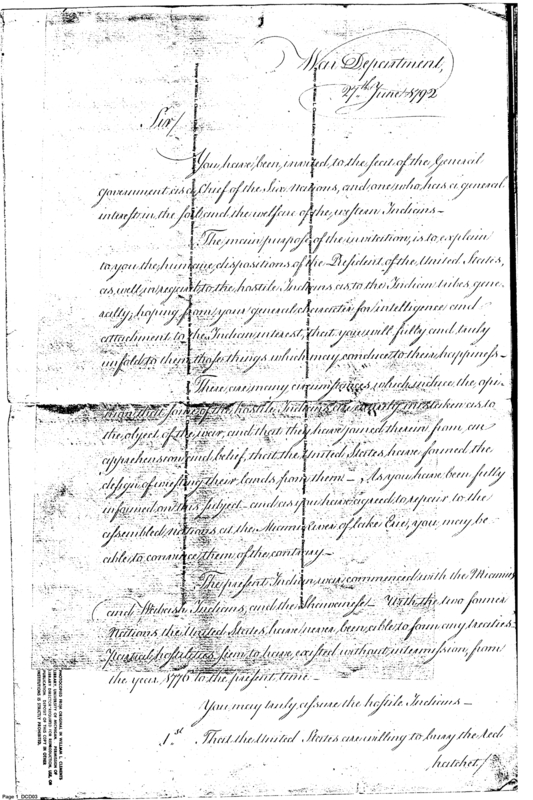 War Department,
27th June 1792
Sir/
You have been, invited, to the seat of the General
government as a Chief of the Six Nations, and one who has a general
interest in the fate and the welfare of the western Indians—
The main purpose of the invitation, is to explain
to you the humane dispositions of the President of the United States,
as well in regard to the hostile Indians as to the Indian tribes gene-
rally, hoping from your general character for intelligence and
attachment to the Indian interest, that you will fully and truly
unfold to them those things which may conduce to their happiness—
There are many circumstances, which induce the opi-
nion that some of the hostile Indians are mistaken as to
the object of the war, and that they have joined therein from an
apprehension and belief, that the United States have formed the
design of wresting their lands from them— As you have been fully
informed on this subject— and as you have agreed to repair to the
assembled nations at the Miami River of Lake Erie, you may be
able to convince them of the contrary—
The present Indian war commenced with the Miamies
and Wabash Indians, and the Shawanese— With the two former
Nations the United States have never been able to form any treaties
hostilities seem to have existed without intermission, from
the year 1776 to the present time—
You may truly assure the hostile Indians—
1.st That the United States are willing to bury the red
hatchet,/
PHOTOCOPIED FROM ORIGINAL IN WILLIAM L. CLEMENTS
LIBRARY, UNIVERSITY OF MICHIGAN. PERMISSION OF
LIBRARY DIRECTOR REQUIRED FOR REPRODUCTION, USE, OR
PUBLICATION. DEPOSIT OF THIS COPY IN OTHER
INSTITUTIONS IS STRICTLY PROHIBITED.
Page 1 DCD03